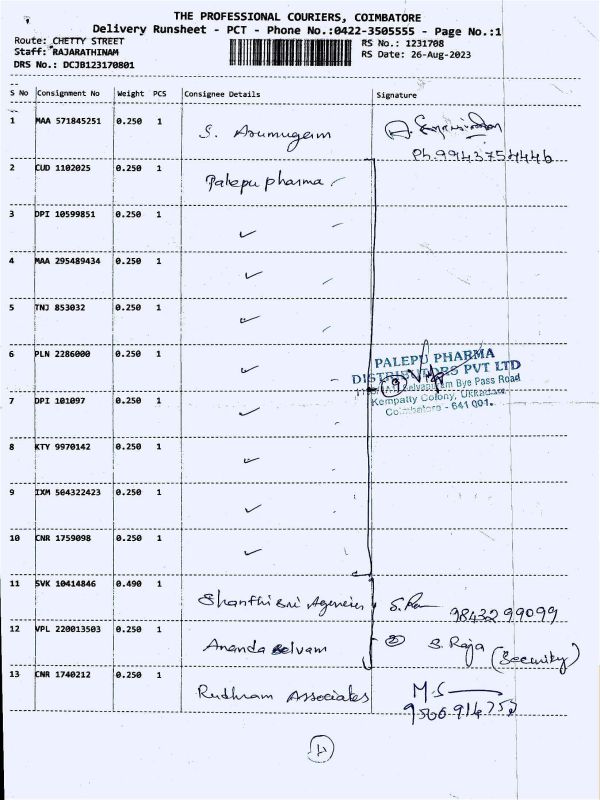 THE PROFESSIONAL COURIERS, COIMBATORE
Delivery Runsheet - PCT - Phone No.:0422-3505555 - Page No.:1
Route: CHETTY STREET RS No.: 1231708
Staff: RAJARATHINAM RS Date: 26-Aug-2023
DRS No.: DCJB123170801
S No Consignment No Weight PCS Consignee Details Signature
1 MAA 571845251 0.250 1 S. Arumugam
Ph.9943754446
2 CUD 1102025 0.250 1 Palepu pharma
3 DPI 10599851 0.250 1 ✓
4 MAA 295489434 0.250 1 ✓
5 TNJ 853032 0.250 1 ✓
6 PLN 2286000 0.250 1 ✓
PALEPU PHARMA
DISTRIBUTORS PVT LTD
Bye Pass Road
Kempatty Colony, Ukkadam
Coimbatore - 641 001.
7 DPI 101097 0.250 1 ✓
8 KTY 9970142 0.250 1 ✓
9 IXM 504322423 0.250 1 ✓
10 CNR 1759098 0.250 1 ✓
11 SVK 10414846 0.490 1 Shanthi Sri Agencies 9843299099
12 VPL 220013503 0.250 1 Ananda Selvam S. Raja (Security)
13 CNR 1740212 0.250 1 Rudhram Associates M.S